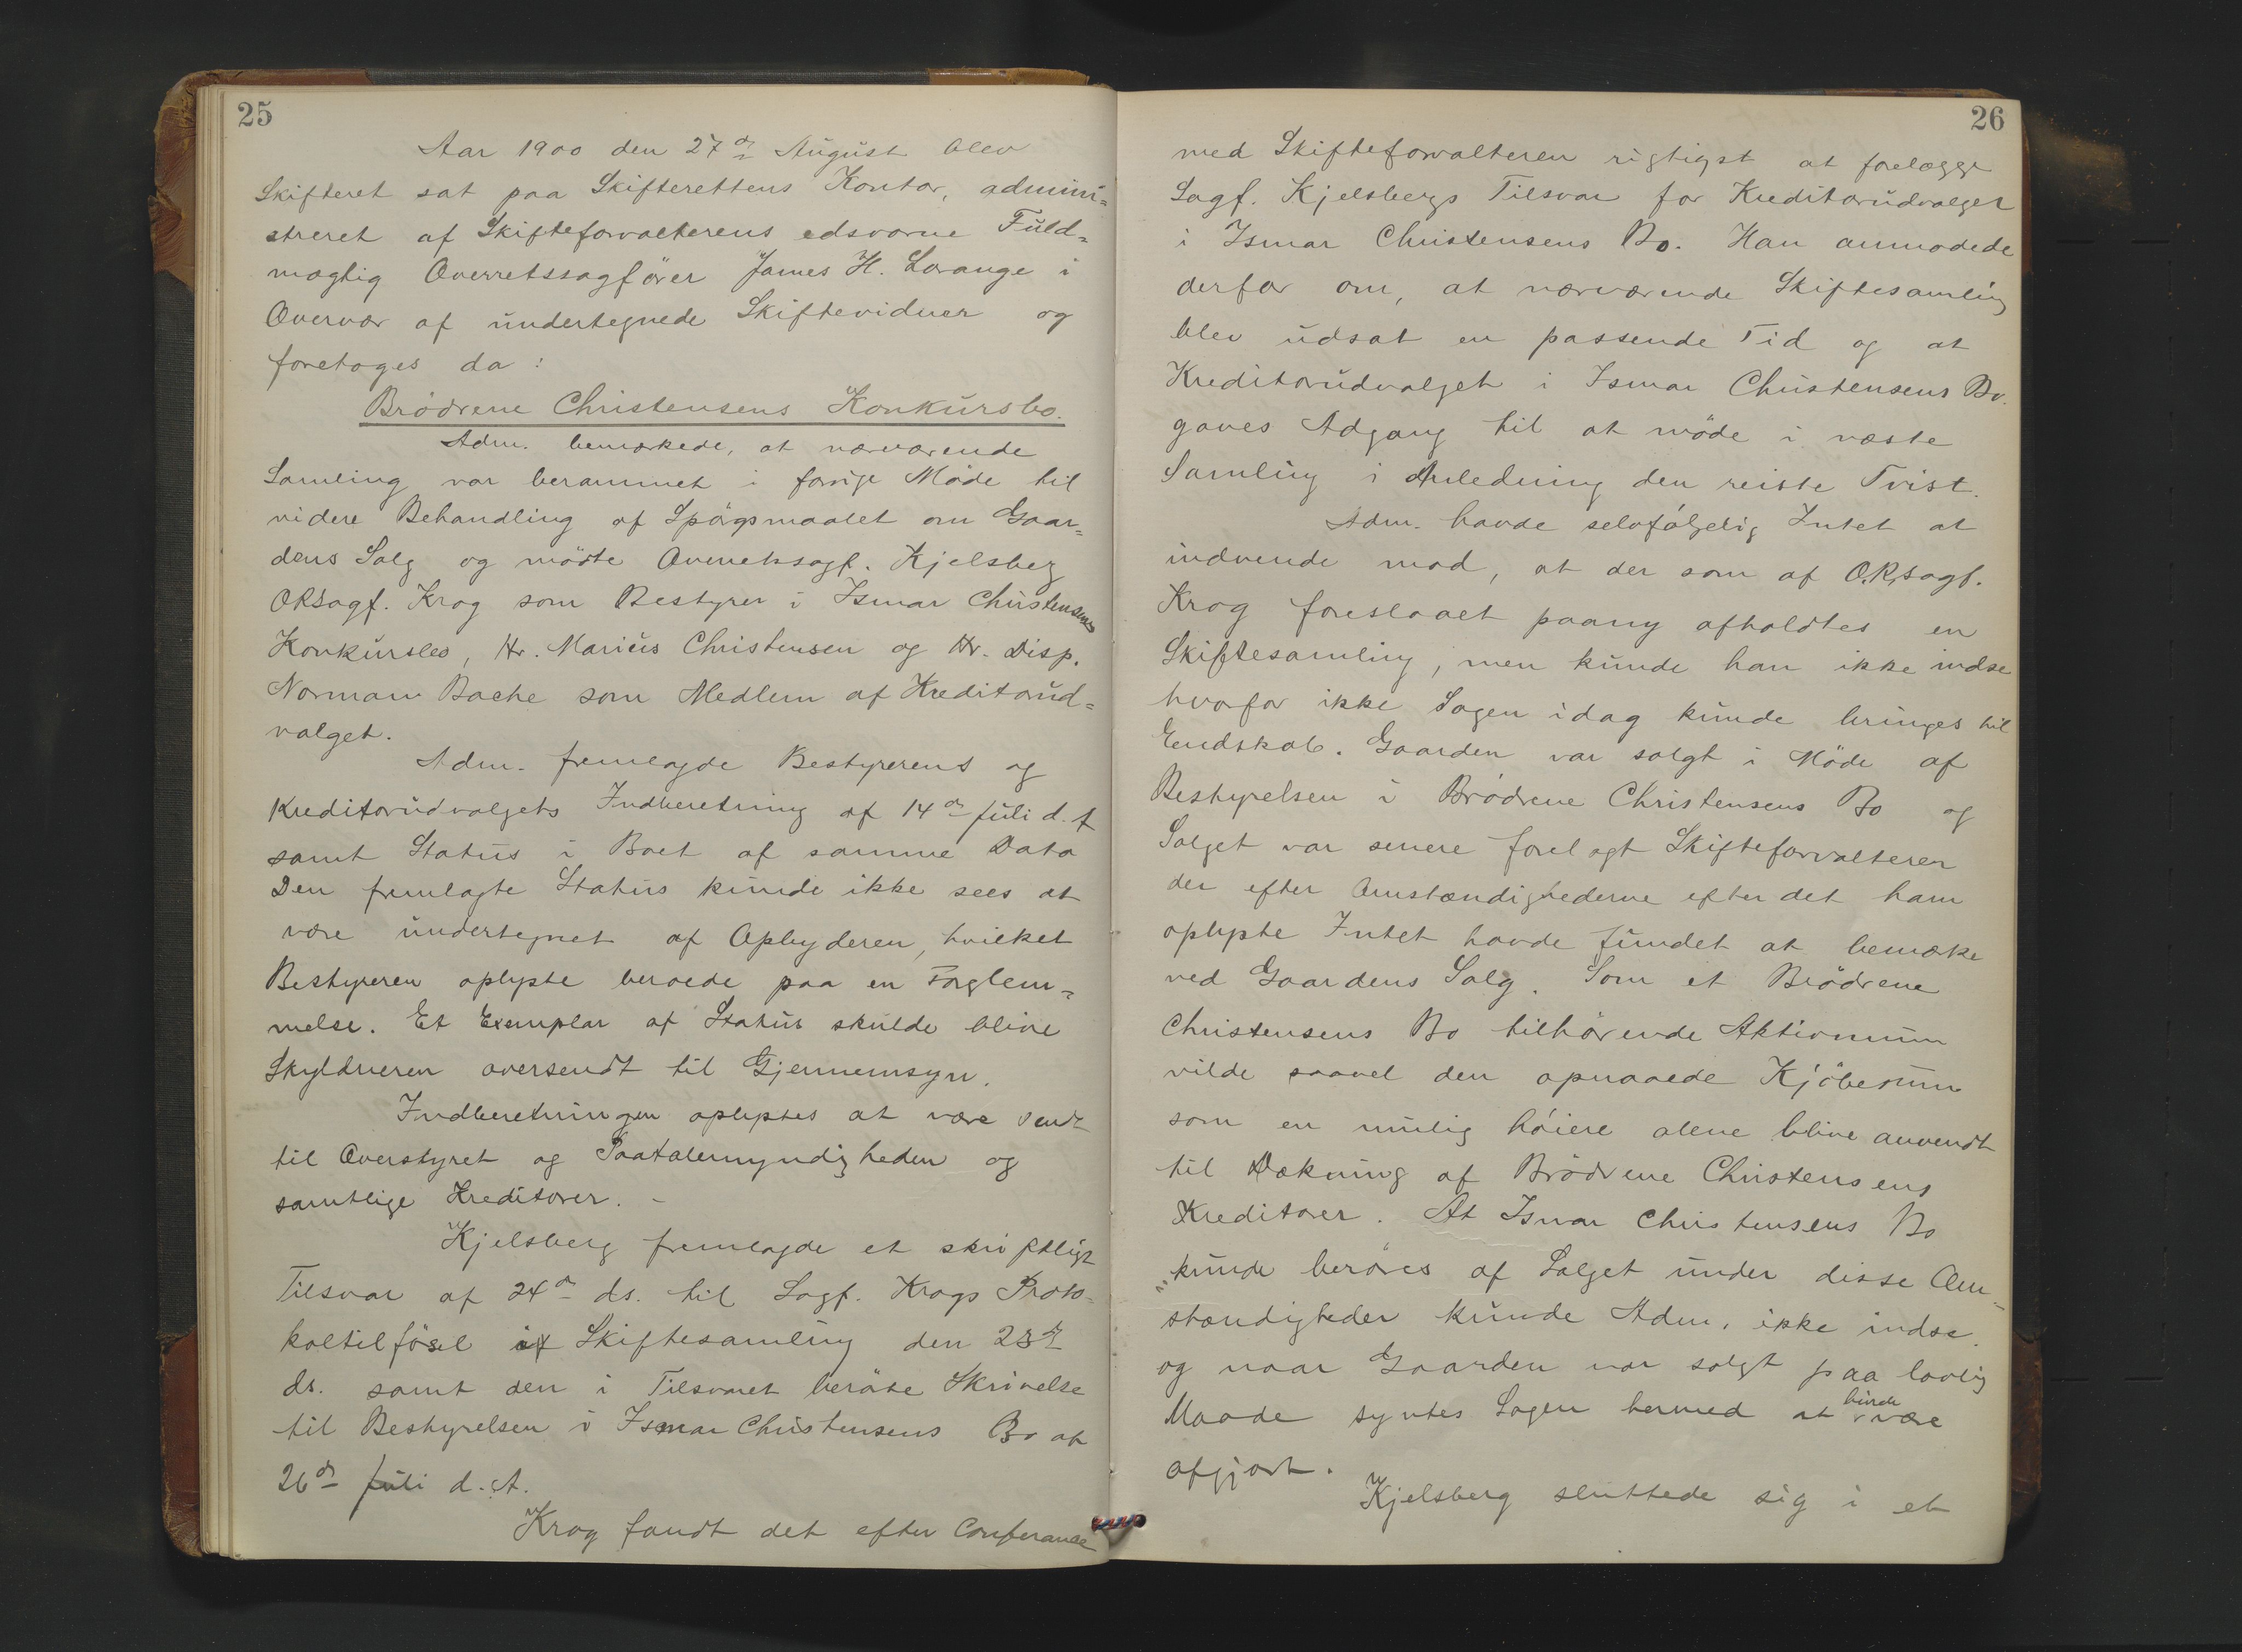 25
Aar 1900 den 27de August blev
Skifteret sat paa Skifterettens Kontor, admini=
streret af Skifteforvalterens edsvorne Fuld=
mægtig Overretssagfører James H. Lorange i
Overvær af undertegnede Skiftevidner og
foretoges da:
Brödrene Christensens Konkursbo.
Adm. bemærkede, at nærværende
Samling var berammet i forrige Møde til
videre Behandling af Spörgsmaalet om Gaar=
dens Salg og mödte Overretssagf. Kjelsberg
ORSagf. Krog som Bestyrer i Ismar Christensens
Konkursbo, Hr. Marius Christensen og Hr. Disp.
Norman Bache som Medlem af Kreditorud=
valget.
Adm. fremlagde Bestyrerens og
Kreditorudvalgets Indberetning af 14de Juli d. A
samt Status i Boet af samme Dato
Den fremlagte Status kunde ikke sees at
være undertegnet af Opbyderen, hvilket
Bestyreren oplyste beroede paa en Forglem=
melse. Et Exemplar af Status skulde blive
Skyldneren oversendt til Gjennemsyn.
Indberetningen oplystes at være sendt
til Overstyret og Paatalemyndigheden og
samtlige Kreditorer. -
Kjelsberg fremlagde et skriftligt
Tilsvar af 24de ds. til Sagf. Krogs Proto=
koltilförsel i Skiftesamling den 23de
ds. samt den i Tilsvaret beråbte Skrivelse
til Bestyrelsen i Ismar Christensens Bo af
26de Juli d. A.
Krog fandt det efter Conferance
26
med Skifteforvalteren rigtigst at forelægge
Sagf. Kjelsbergs Tilsvar for Kreditorudvalget
i Ismar Christensens Bo. Han anmodede
derfor om, at nærværende Skiftesamling
blev udsat en passende Tid og at
Kreditorudvalget i Ismar Christensens Bo.
gaves Adgang til at möde i næste
Samling i Anledning den reiste Tvist.
Adm. havde selvfölgelig Intet at
indvende mod, at der som af O.R.sagf.
Krog foreslaaet paany afholdtes en
Skiftesamling, men kunde han ikke indse
hvorfor ikke Sagen idag kunde bringes til
Endskab. Gaarden var solgt i Möde af
Bestyrelsen i Brödrene Christensens Bo og
Salget var senere forelagt Skifteforvalteren
der efter Omstændighederne efter det ham
oplyste Intet havde fundet at bemærke
ved Gaardens Salg. Som et Brödrene
Christensens Bo tilhörende Aktivum
vilde saavel den opnaaede Kjöbesum
som en mulig höiere alene blive anvendt
til Dækning af Brödrene Christensens
Kreditorer. At Ismar Christensens Bo
kunde beröres af Salget under disse Om=
stændigheder kunde Adm. ikke indse
og naar Gaarden var solgt paa lovlig
Maade syntes Sagen hermed at burde være
afgjort.
Kjelsberg sluttede sig i et